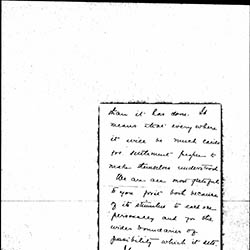 than it has done. It
means that every where
it will be much easier
for settlement people to
make themselves understood
We are all most grateful
to you first both because
of its stimulus to each one
personally and for the
wider boundaries of
possibility which it sets